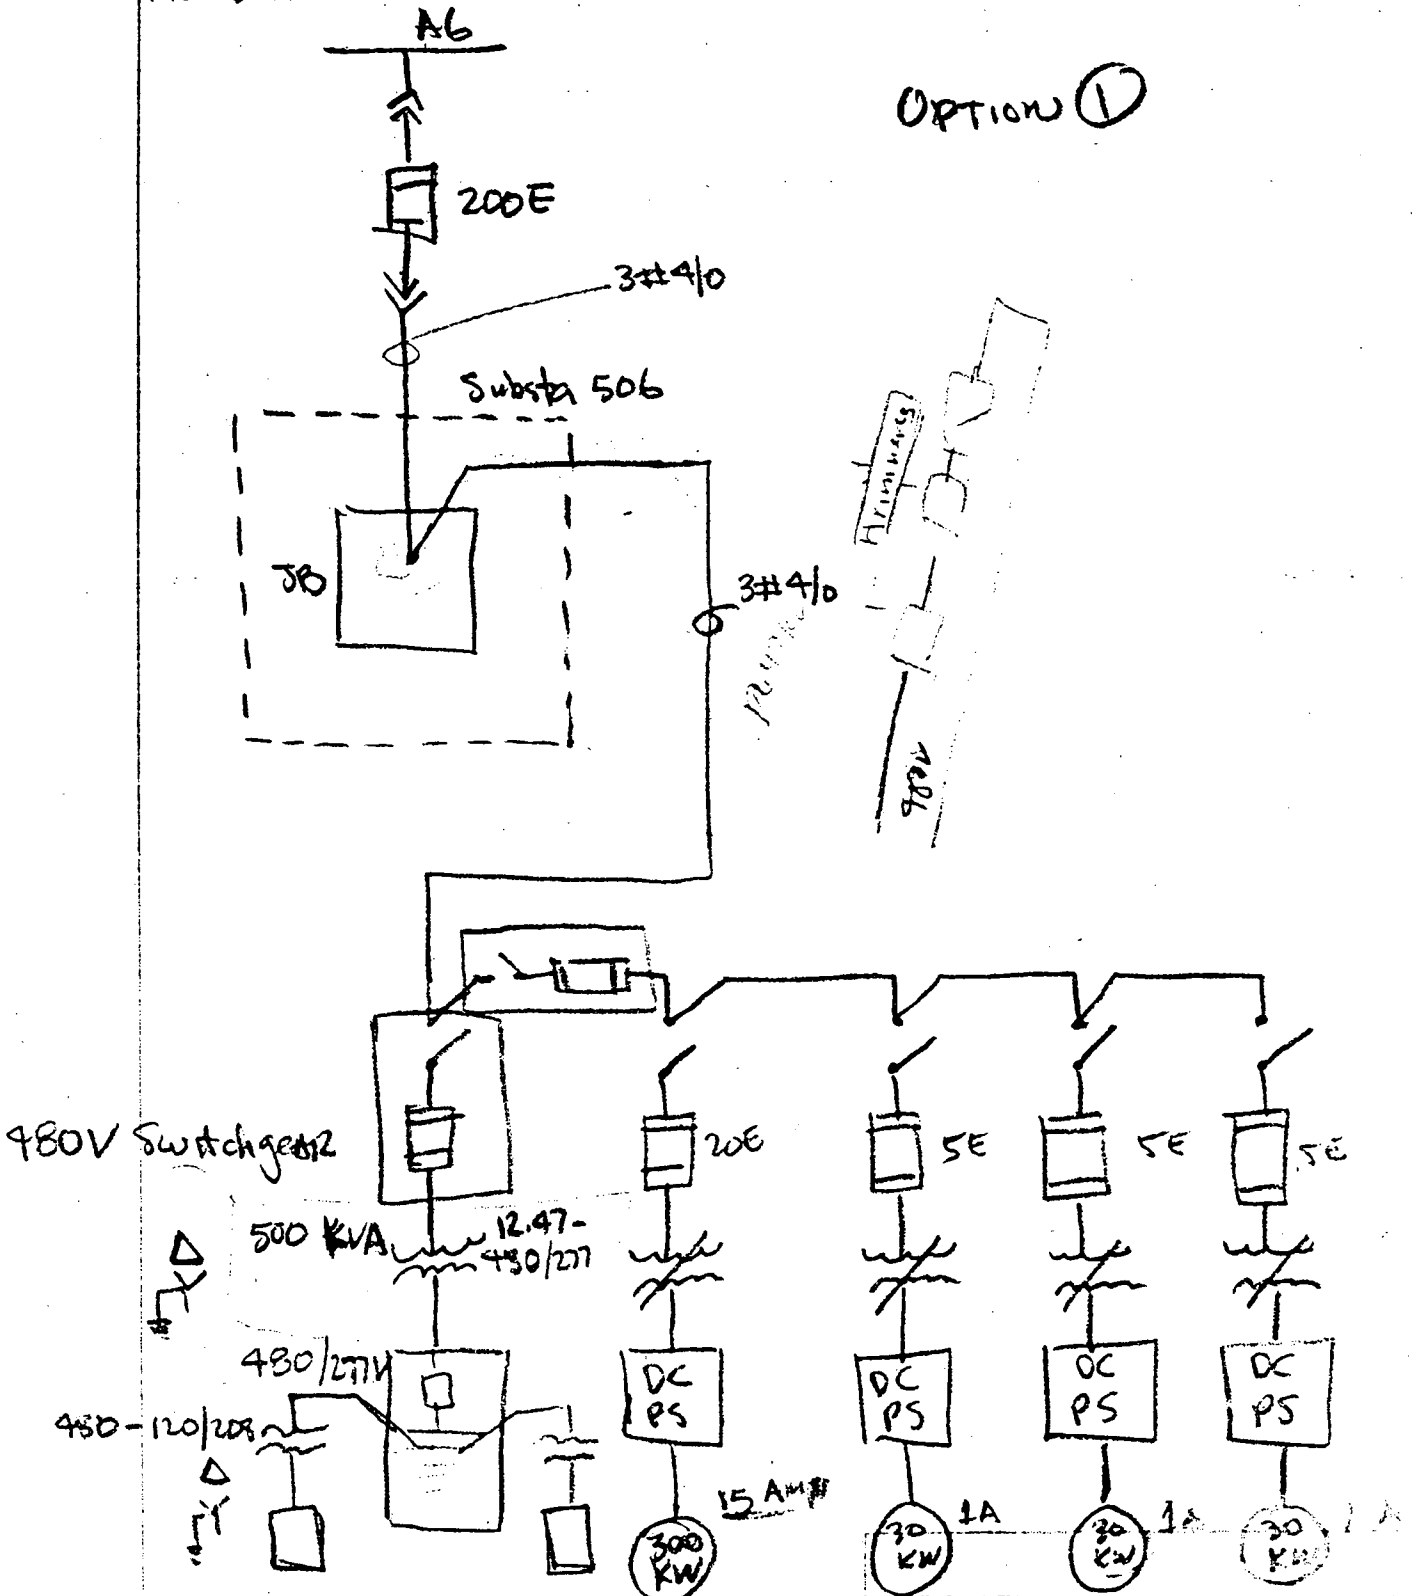 A6
OPTION 1
200E
3#4/0
Substa 506
JB
3#4/0
480V Switchgear
20E
5E
5E
5E
500 KVA
12.47-
480/277
480/277V
480-120/208
DC
PS
DC
PS
DC
PS
DC
PS
15 Amp
1A
1A
1A
300
KW
30
KW
30
KW
30
KW